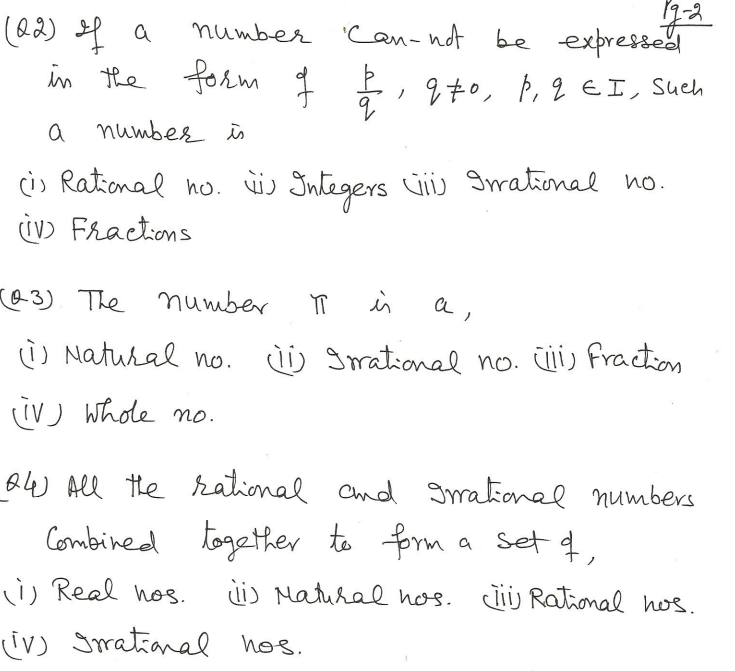 Pg-2
(Q2) If a number can-not be expressed
in the form of p/q, q≠0, p, q ∈ I, Such
a number is
(i) Rational no. (ii) Integers (iii) Irrational no.
(iv) Fractions
(Q3) The number π is a,
(i) Natural no. (ii) Irrational no. (iii) fraction
(iv) whole no.
Q4) All the rational and irrational numbers
Combined together to form a set of,
(i) Real nos. (ii) Natural nos. (iii) Rational nos.
(iv) Irrational nos.